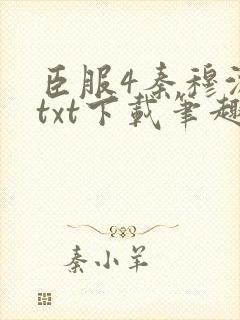 臣服4秦穆
txt下載筆趣
秦小羊